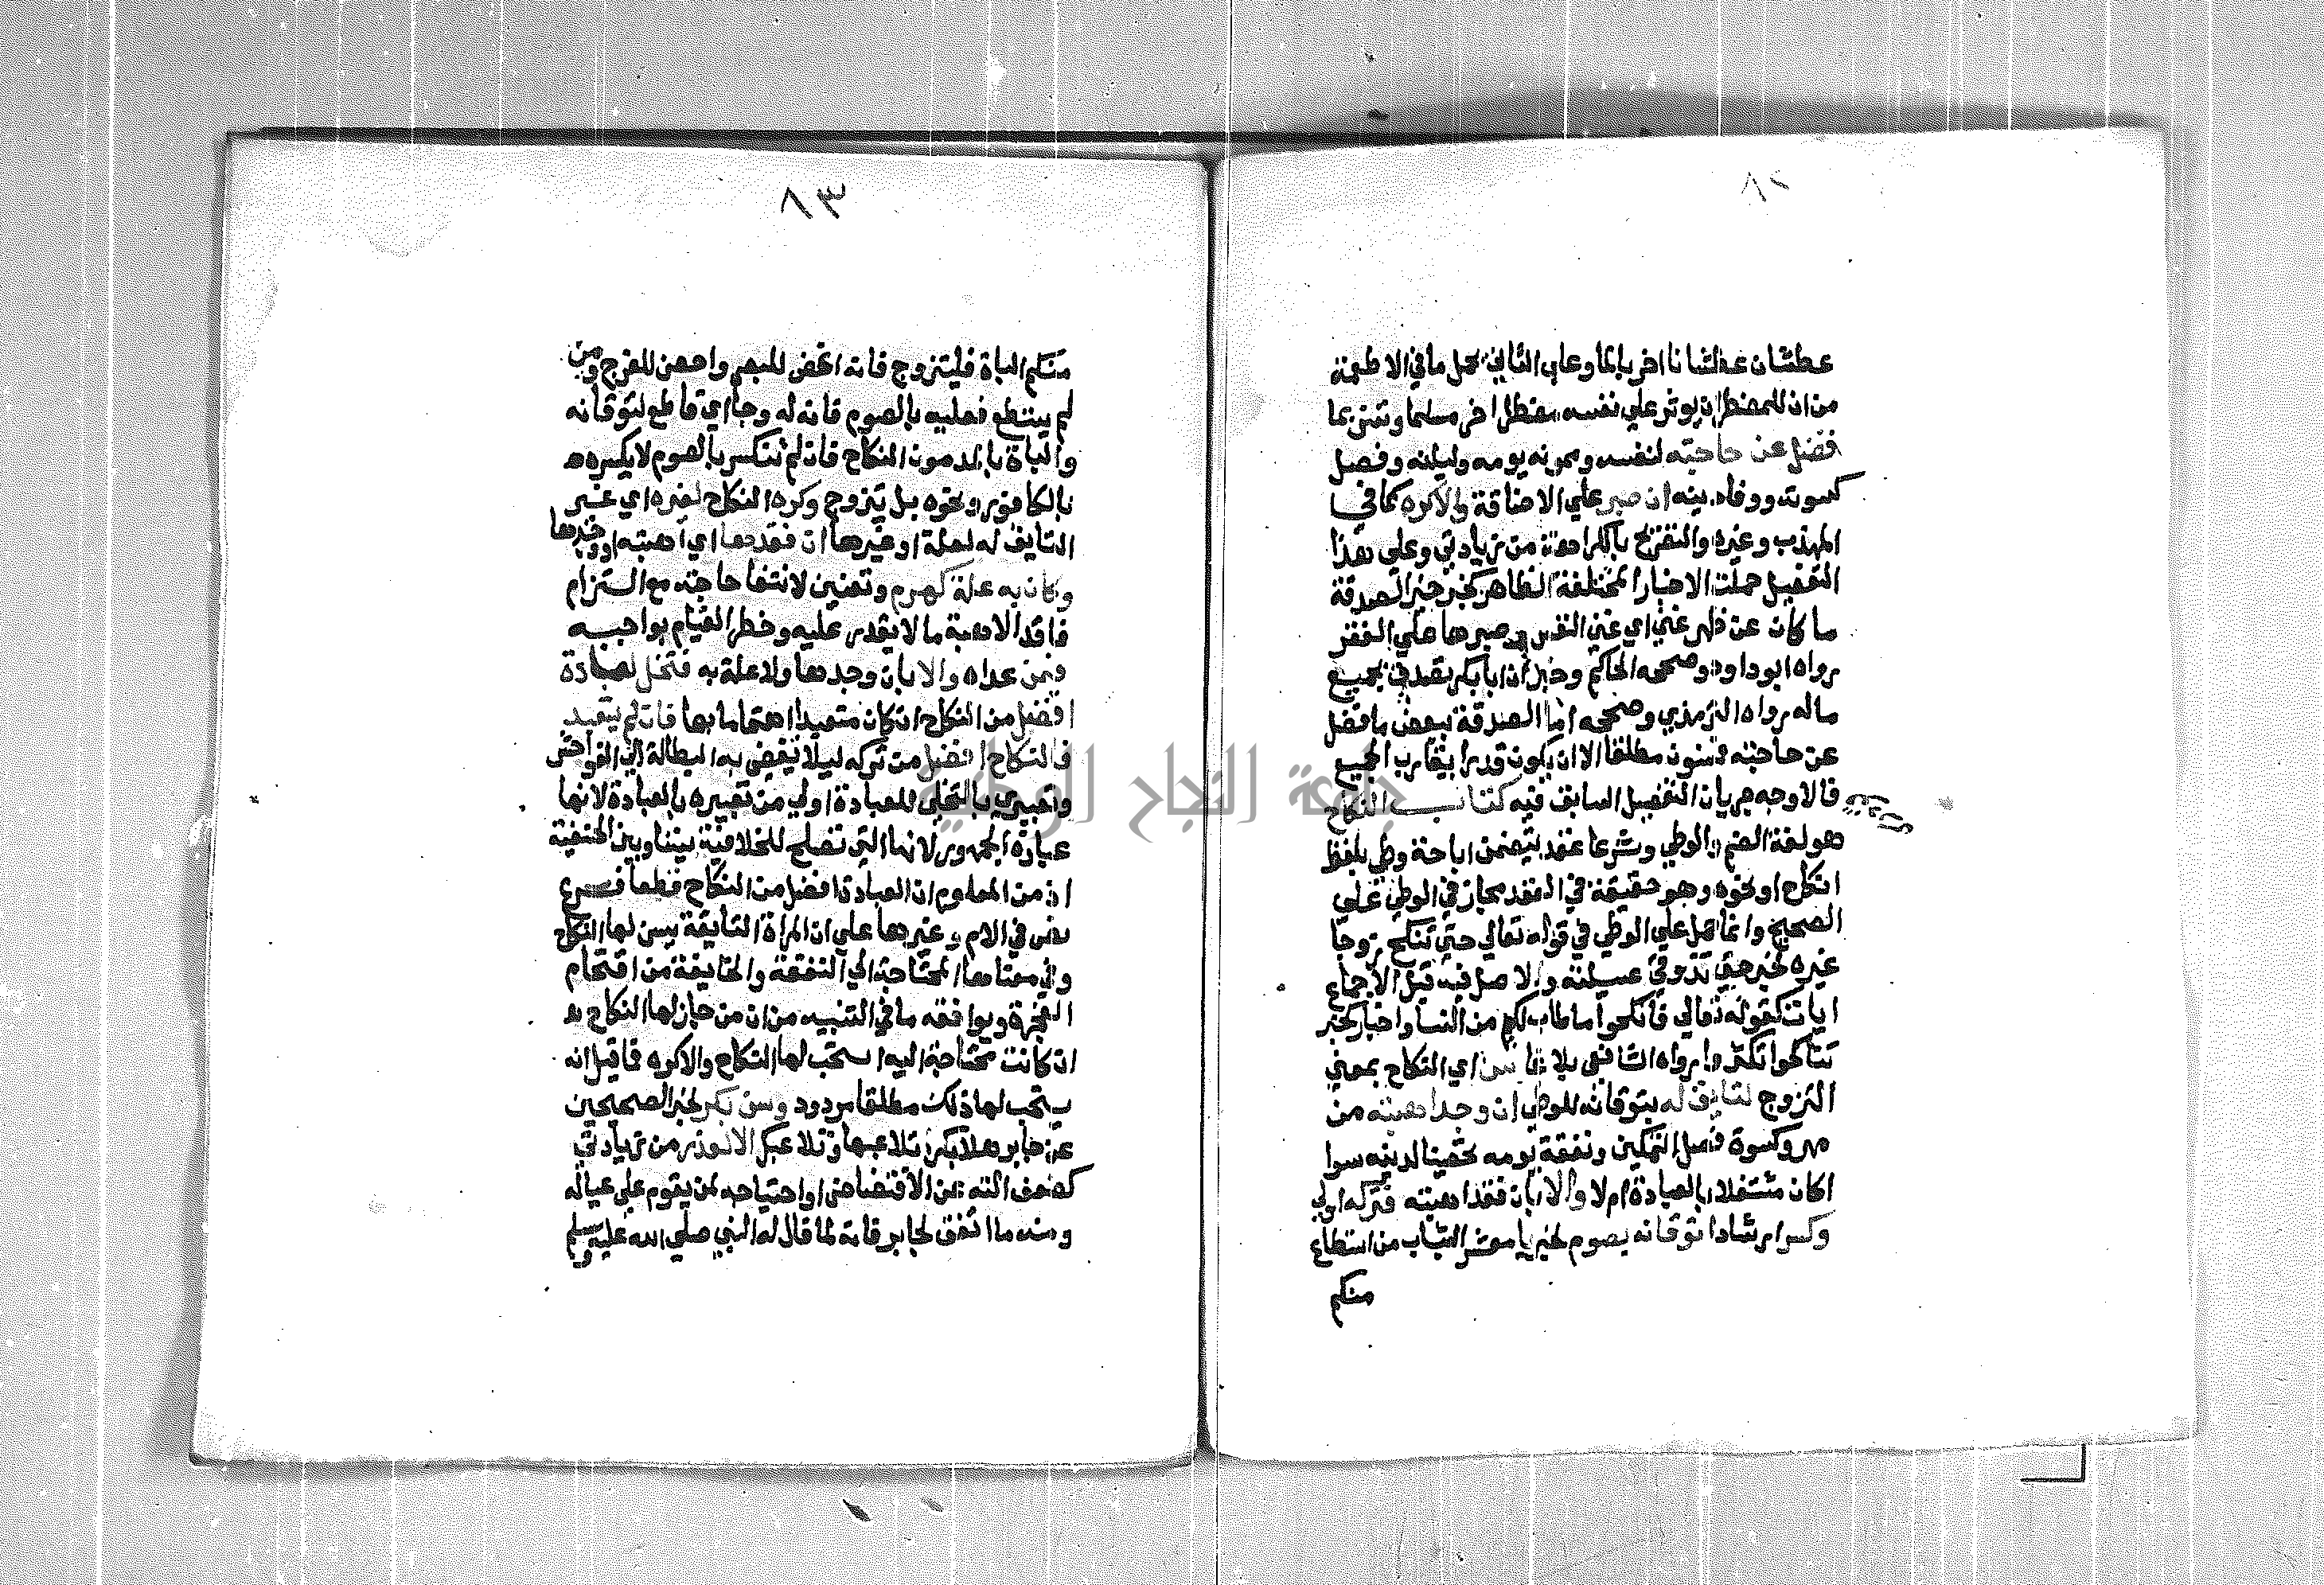 ٨٢
عطشان عطشانا اخر بالما وعلي الثاني يحمل ما في الاطعمة
من ان للمضطر ان يوثر علي نفسه مضطرا اخر مسلما وتسن بما
فضل عن حاجته لنفسه وممونه يومه وليلته وفصل
كسوته ووفاء دينه ان صبر علي الاضاقة والاكره كما في
المهذب وغيره والتصريح بالكراهة من زيادتي وعلي هذا
التفصيل حملت الاخبار المختلفة الظاهر كخبر خير الصدقة
ما كان عن ظهر غني اي غني النفس وصبرها علي الفقر
رواه ابو داود وصححه الحاكم وخبر ان ابا بكر تصدق بجميع
ماله رواه الترمذي وصححه اما الصدقة ببعض ما فضل
عن حاجته فسنون مطلقا الا ان يكون قدرا يقارب الجميع
فالاوجه جريان التفصيل السابق فيه كتاب النكاح
هو لغة الضم والوطي وشرعا عقد يتضمن اباحة وطي بلفظ
انكاح او نحوه وهو حقيقة في العقد مجاز في الوطي علي
الصحيح وانما حمل علي الوطي في قوله تعالي حتي تنكح زوجا
غيره لخبر حتي تذوقي عسيلته والاصل فيه قبل الاجماع
ايات كقوله تعالي فانكحوا ما طاب لكم من النسا واخبار كخبر
تناكحوا تكثروا رواه الشافعي بلاغا سن اي النكاح بمعني
التزوج لتايق له بتوقانه للوطي ان وجد اهبته من
مهر وكسوة فصل التمكين ونفقة يومه تحصينا لدينه سوا
اكان مشتغلا بالعبادة ام لا والا بان فقد اهبته فتركه اولي
وكسر ارشادا توقانه بصوم لخبر يا معشر الشباب من استطاع
منكم
٨٣
منكم الباة فليتزوج فانه اغض للبصر واحصن للفرج ومن
لم يستطع فعليه بالصوم فانه له وجا اي قاطع لتوقانه
والباة بالمد مون النكاح فان لم تنكسر بالصوم لا يكسره
بالكافور ونحوه بل يتزوج وكره النكاح لغيره اي غير
التايق له لعلة او غيرها ان فقدها اي اهبته او وجدها
وكان به علة كهرم وتعنين لانتفا حاجته مع التزام
فاقد الاهبة ما لا يقدر عليه وخطر القيام بواجبه
فمن عداه والا بان وجدها ولا علة به فتخل لعبادة
افضل من النكاح ان كان متعبدا اهتماما بها فان لم يتعبد
فالنكاح افضل من تركه ليلا تفضي به البطالة الي الفواحش
وتعبيري بالتخلي للعبادة اولي من تعبيره بالعبادة لانها
عبارة الجمهور لانها التي تصلح للخلافية بيننا وبين الحنفية
اذ من المعلوم ان العبادة افضل من النكاح قطعا فرع
نص في الام وغيرها علي ان المراة التايقة يسن لها النكاح
وفي معناها المحتاجة الي النفقة والخايفة من اقتحام
الفجرة ويوافقه ما في التنبيه من ان من جاز لها النكاح
ان كانت محتاجة اليه استحب لها النكاح والاكره فما قيل انه
يستحب لها ذلك مطلقا مردود وسن بكر لخبر الصحيحين
عن جابر هلا بكرا تلاعبها وتلاعبك الا لعذر من زيادتي
كضعف الته عن الاقتضاض او احتياجه لمن يقوم علي عياله
ومنه ما اتفق لجابر فانه لما قال له النبي صلي الله عليه وسلم